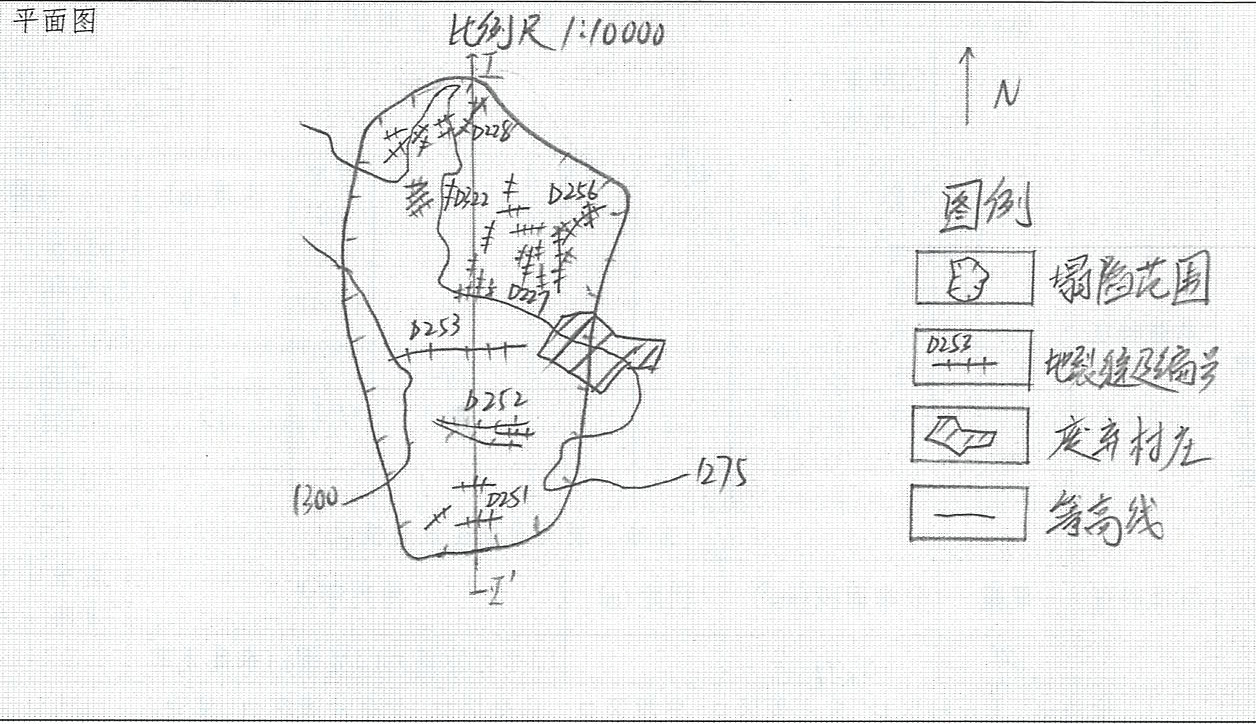 平面图
比例尺 1:10000
I
N
D228
D322
D256
D227
D253
D252
D251
1300
1275
I'
图例
塌陷范围
D253
地裂缝及编号
废弃村庄
等高线